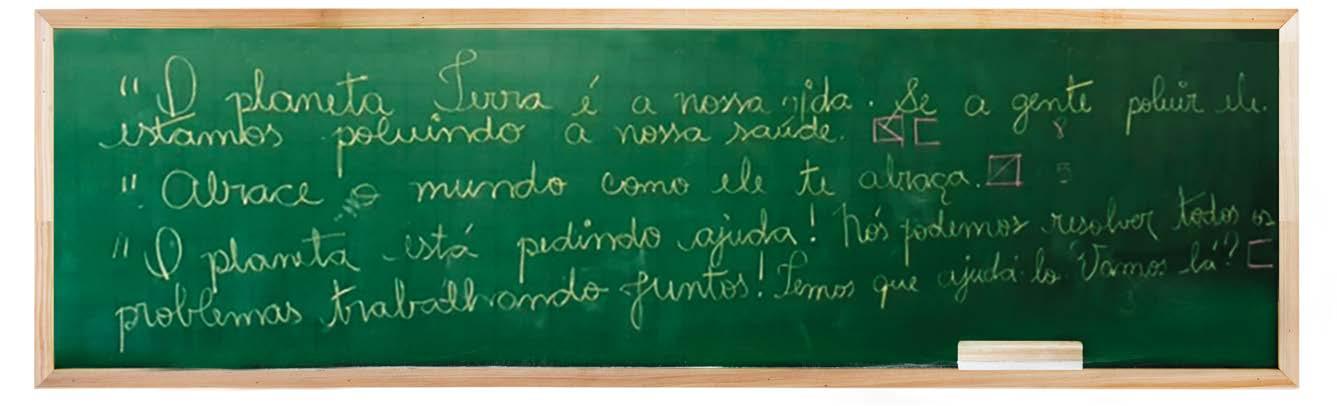 "O planeta Terra é a nossa vida. Se a gente poluir ele.
estamos poluindo a nossa saúde. 8
"Abrace o mundo como ele te abraça. 5
"O planeta está pedindo ajuda! Nós podemos resolver todos os
problemas trabalhando juntos! Temos que ajudá-lo. Vamos lá? 3